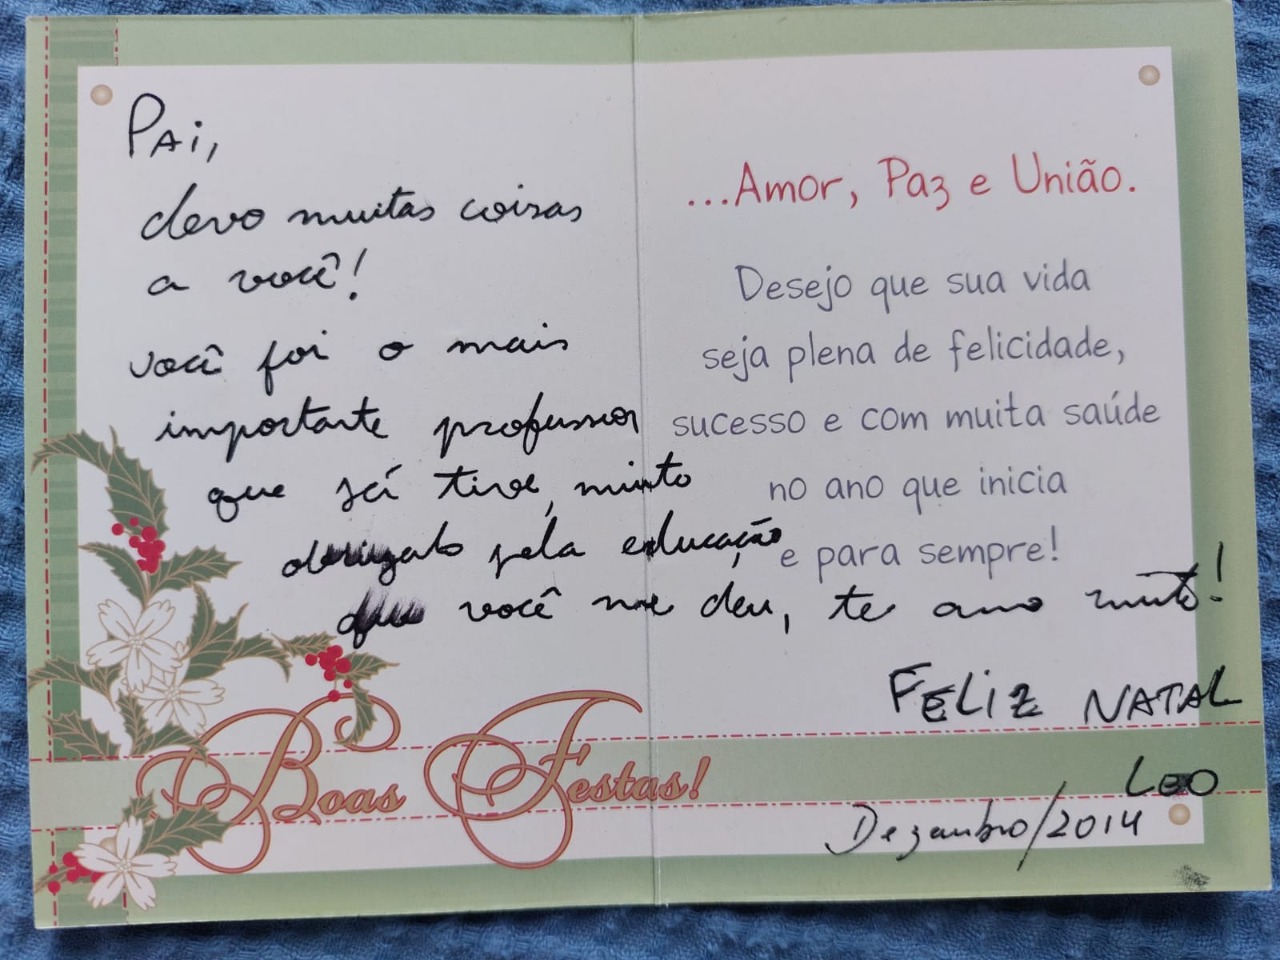 Pai,
devo muitas coisas
a você!
você foi o mais
importante professor
que já tive, muito
obrigado pela educação
que você me deu, te amo muito!
FELIZ NATAL
LEO
Dezembro/2014
...Amor, Paz e União.
Desejo que sua vida
seja plena de felicidade,
sucesso e com muita saúde
no ano que inicia
e para sempre!
Boas Festas!